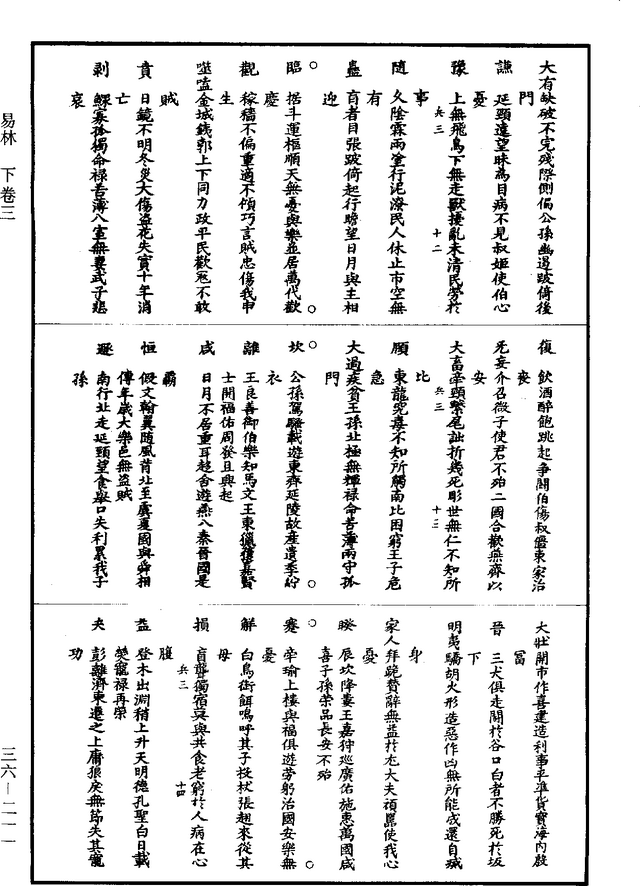 易林　下卷三
三六—二一一
大有缺破不完殘際側偏公孫幽遏跛倚後
門
謙　延頸遠望眛為目病不見叔姬使伯心
憂
豫　上無飛鳥下無走獸擾亂未清民勞於
事
兵三　十二
隨　久陰霖雨塗行泥潦民人休止市空無
有
蠱　盲者目張跛倚起行瞻望日月與主相
迎
臨　据斗運樞順天無憂與樂並居萬代歡
慶
觀　稼穡不偏重適不傾巧言賊忠傷我申
生
噬嗑金城錢郭上下同力政平民歡寇不敢
賊
賁　日鏡不明冬災大傷盜花失實十年消
亡
剥　鰥寡孤獨命祿苦薄入室無妻武子悲
哀
復　飲酒醉飽跳起爭鬪伯傷叔僵東家治
喪
无妄介召微子使君不殆二國合歡燕齊以
安
大畜牽頸繫尾詘折幾死彫世無仁不知所
比
兵三　十三
頤　東龍宛毒不知所觸南北困窮王子危
急
大過疾貧王孫北極無輝祿命苦薄兩守孤
門
坎　公孫駕驪載遊東齊延陵故產遺季紵
衣
離　王良善御伯樂知馬文王東獵獲嘉賢
士開福佑周發旦興起
咸　日月不居重耳趨舍遊燕入秦晉國是
霸
恒　假文翰翼隨風背北至虞夏國與舜相
傳年歲大樂邑無盜賊
遯　南行北走延頸望食舉口失利累我子
孫
大壯開市作喜建造利事平準貨寶海內殷
富
晉　三犬俱走鬪於谷口白者不勝死於坂
下
明夷驕胡火形造惡作凶無所能成還自滅
身
家人拜跪贊辭無益於尤大夫頑嚚使我心
憂
睽　辰次降婁王嘉狩巡廣佑施惠萬國咸
喜子孫榮品長安不殆
蹇　牵瑜上樓與福俱遊勞躬治國安樂無
憂
解　白鳥銜餌鳴呼其子投杖張翅來從其
母
損　盲聾獨宿莫與共食老窮於人病在心
腹
兵三　十四
益　登木出淵稍上升天明德孔聖白日載
熒寵祿再榮
夬　彭離濟東遷之上庸狼戾無節失其寵
功